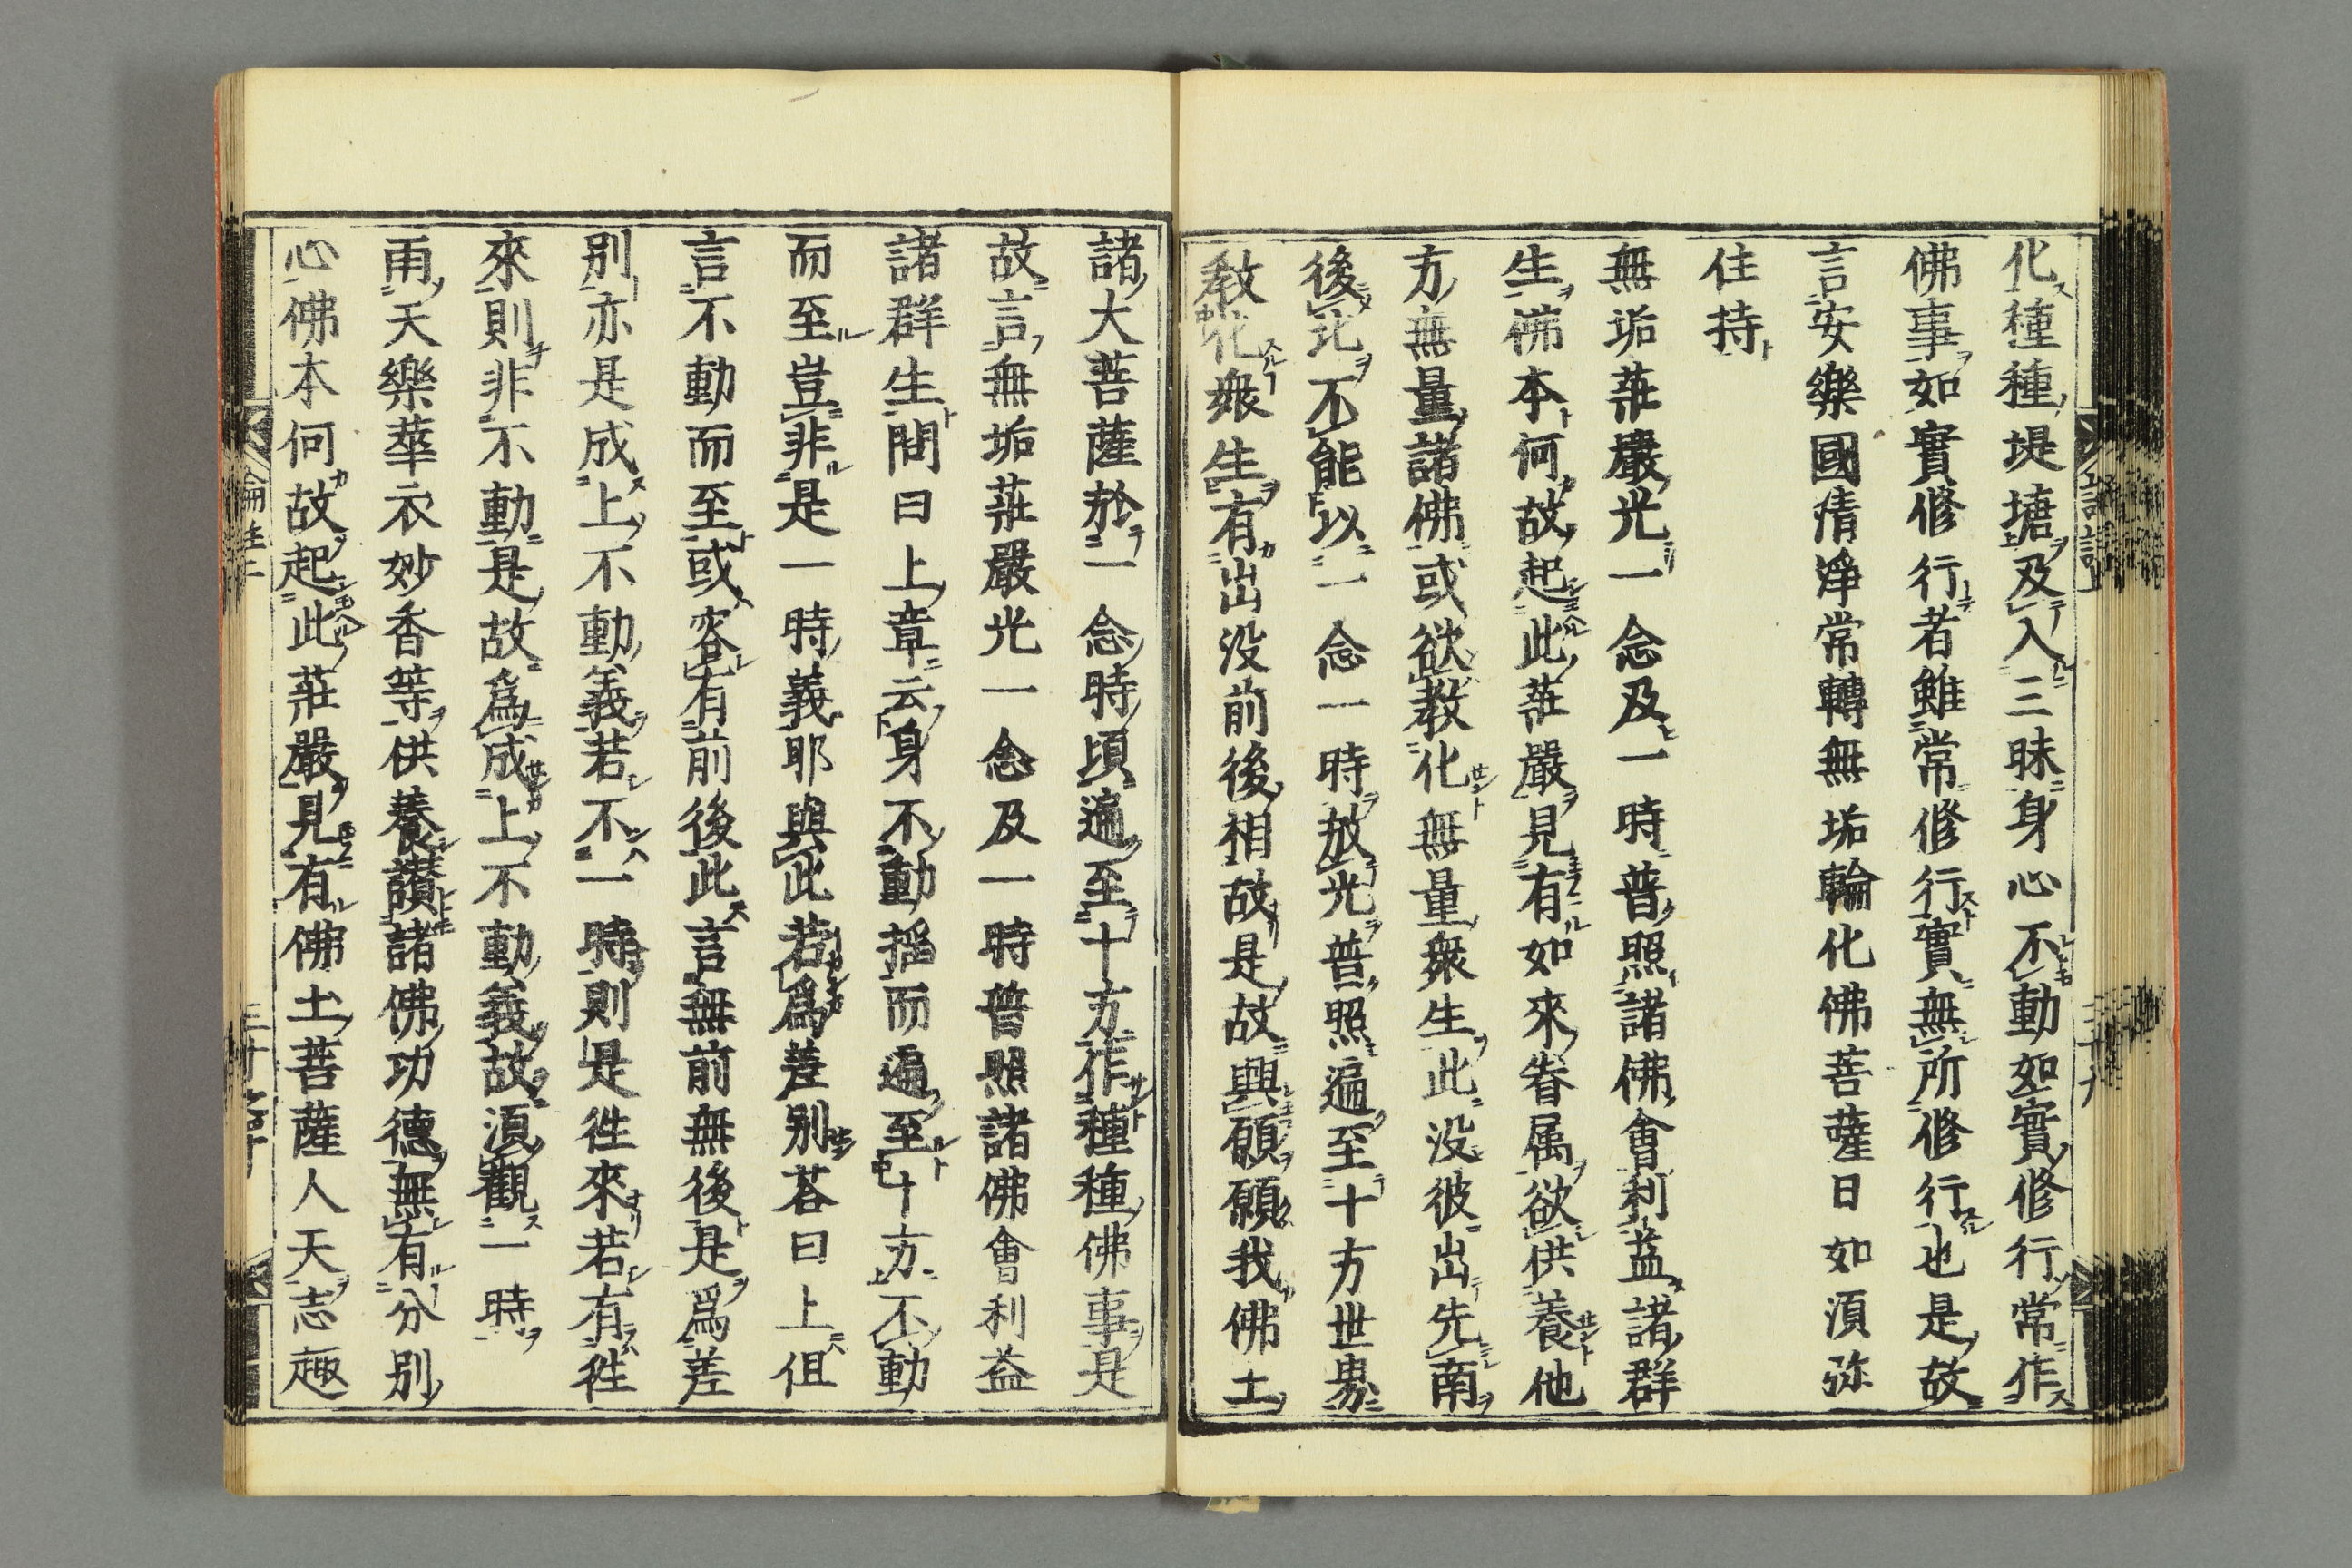 化種種堤塘及入三昧身心不動如實修行常作
佛事如實修行者雖常修行實無所修行也是故
言安樂國淸淨常轉無垢輪化佛菩薩日如湏弥
住持
無垢莊嚴光一念及一時普照諸佛會利益諸群
生佛本何故起此莊嚴見有如來眷属欲供養他
方無量諸佛或欲教化無量衆生此没彼出先南
後北不能以一念一時放光普照遍至十方世界
教化衆生有出没前後相故是故興願願我佛土
諸大菩薩於一念時頃遍至十方作種種佛事是
故言無垢莊嚴光一念及一時普照諸佛會利益
諸群生問曰上章云身不動揺而遍至十方不動
而至豈非是一時義耶與此若爲差别荅曰上但
言不動而至或容有前後此言無前無後是爲差
别亦是成上不動義若不一時則是徃來若有徃
來則非不動是故爲成上不動義故湏觀一時
雨天樂華衣妙香等供養讃諸佛功德無有分别
心佛本何故起此莊嚴見有佛土菩薩人天志趣